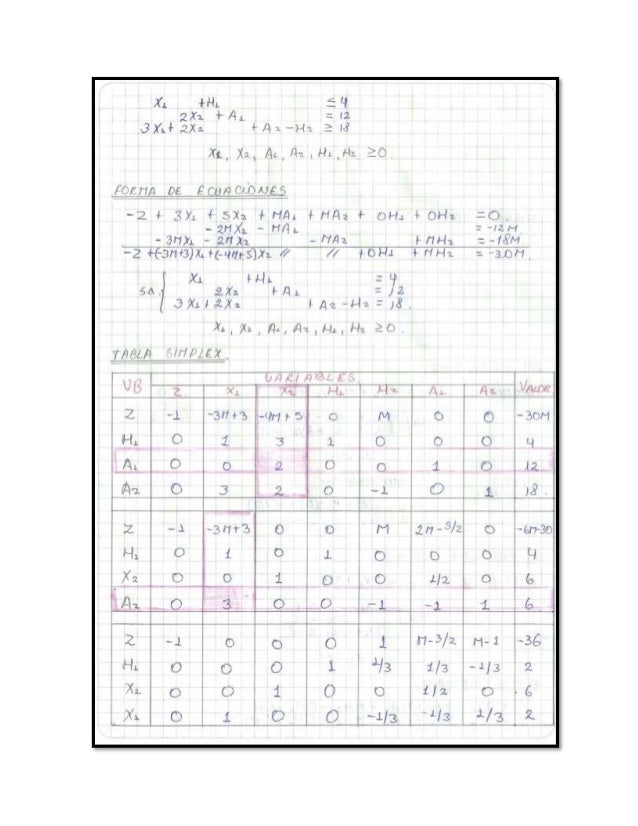 X1 +H1 ≤ 4
2X2 + A1 = 12
3X1+ 2X2 + A2 -H2 ≥ 18
X1, X2, A1, A2, H1, H2 ≥0.
FORMA DE ECUACIONES
-Z + 3X1 + 5X2 + MA1 + MA2 + OH1 + OH2 =0.
- 2MX2 - MA1 = -12M.
- 3MX1 - 2MX2 - MA2 + MH2 = -18M.
-Z +(-3M+3)X1 +(-4M+5)X2 // // +OH1 + MH2 = -30M.
X1 +H1 = 4
s.a. { 2X2 + A1 = 12
3X1+2X2 + A2 -H2 = 18.
X1, X2, A1, A2, H1, H2 ≥0.
TABLA SIMPLEX.
VARIABLES.
VB Z X1 X2 H1 H2 A1 A2 VALOR
Z -1 -3M+3 -4M+5 0 M 0 0 -30M
H1 0 1 3 1 0 0 0 4
A1 0 0 2 0 0 1 0 12
A2 0 3 2 0 -1 0 1 18.
Z -1 -3M+3 0 0 M 2M-5/2 0 -6M-30
H1 0 1 0 1 0 0 0 4
X2 0 0 1 0 0 1/2 0 6
A2 0 3 0 0 -1 -1 1 6
Z -1 0 0 0 1 M-3/2 M-1 -36
H1 0 0 0 1 1/3 1/3 -1/3 2
X2 0 0 1 0 0 1/2 0 6
X1 0 1 0 0 -1/3 -1/3 1/3 2